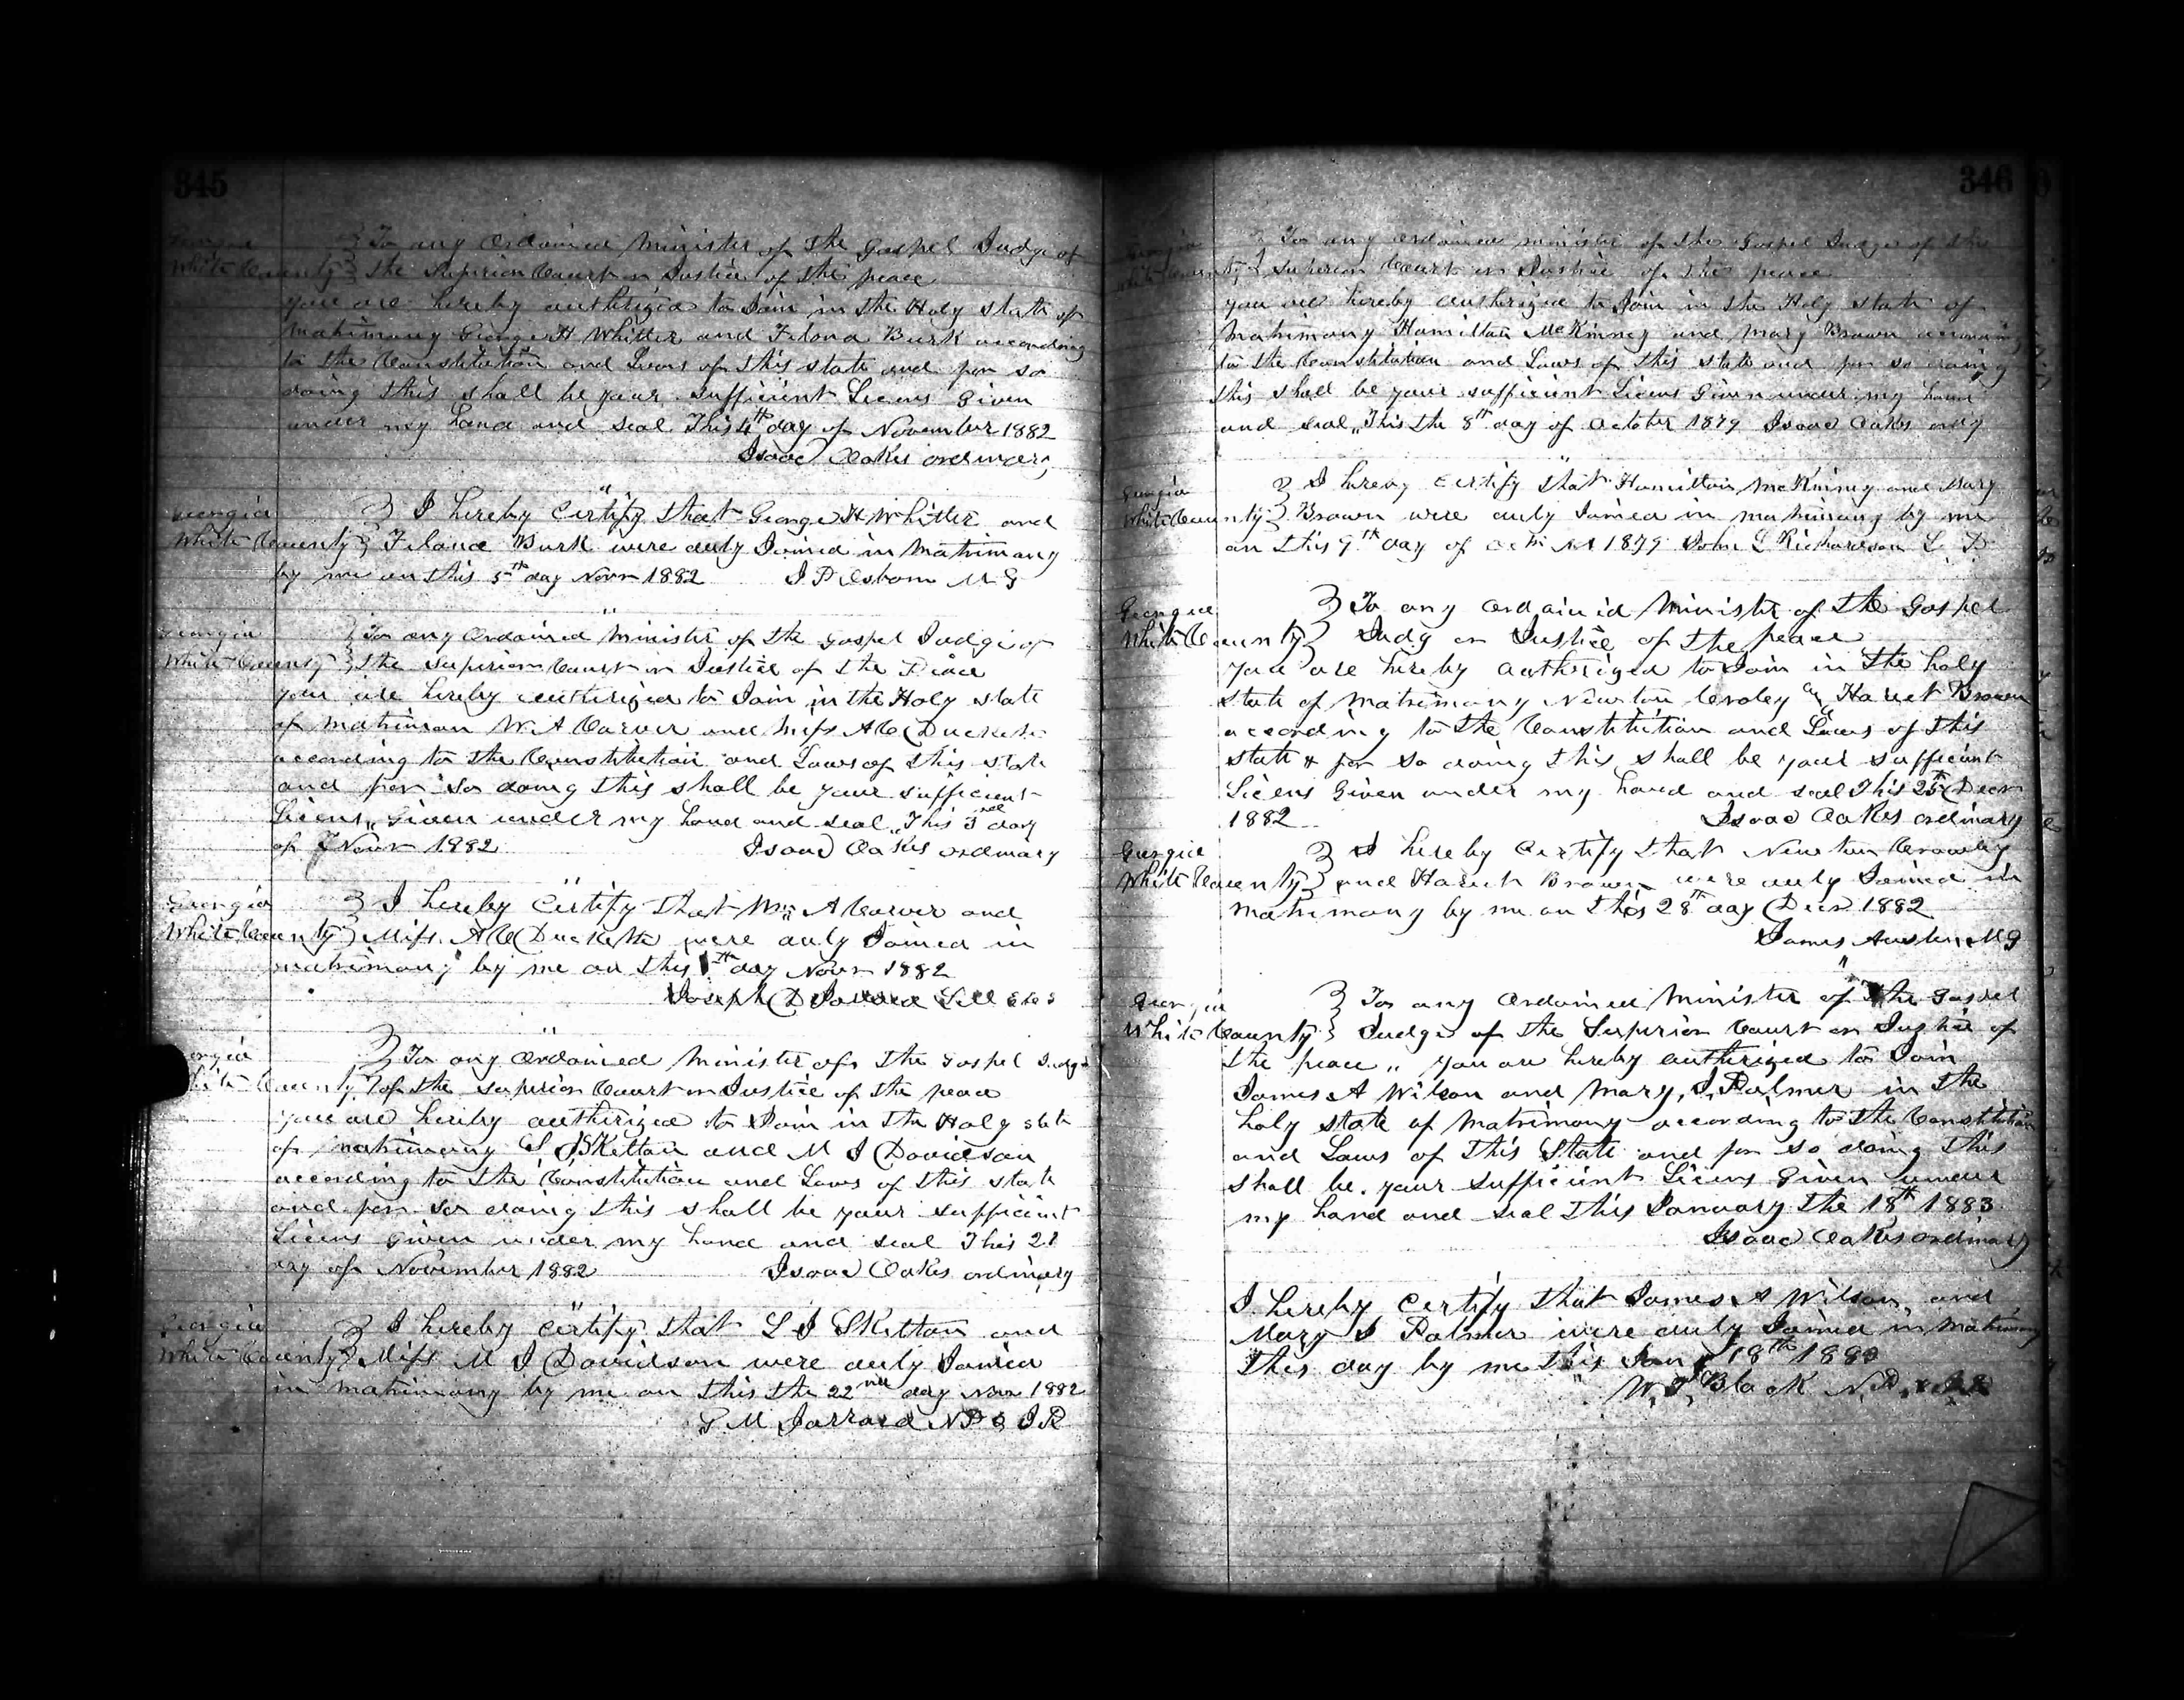 345
Georgia } To any Ordained Minister of the Gospel Judge of
White County } the Superior Court or Justice of the peace
you are hereby authorized to Join in the Holy state of
Matrimony George H Whitter and Felona Burk according
to the Constitution and Laws of this state and for so
doing this shall be your sufficient Licens Given
under my hand and seal This 4th day of November 1882
Isaac Oakes ordinary
Georgia } I hereby Certify that George H Whitter and
White County } Felona Burk were duly Joined in Matrimony
by me on this 5th day Novr 1882 J P Osborn M G
Georgia } To any Ordained Minister of the Gospel Judge of
White County } the Superior Court or Justice of the Peace
you are hereby authorized to Join in the Holy state
of Matrimon W. A Carver and Miss A C Duckett
according to the Constitution and Laws of this state
and for so doing this shall be your sufficient
Licens,, Given under my hand and seal,, This 3rd day
of Novr 1882 Isaac Oakes ordinary
Georgia } I hereby Certify that Wm A Carver and
White County } Miss. A C Duckett were duly Joined in
matrimony by me on this day Novr 1882
Joseph D
Georgia } To any Ordained Minister of the Gospel Judge
White County } of the Superior Court or Justice of the peace
you are hereby authorized to Join in the Holy state
of matrimony L J Skelton and M J Davidson
according to the Constitution and Laws of this state
and for so doing this shall be your sufficient
Licens Given under my hand and seal This 21
day of November 1882 Isaac Oakes ordinary
Georgia } I hereby Certify that L J Skelton and
White County } Miss M J Davidson were duly Joined
in matrimony by me on this the 22nd day Novr 1882
M Jarrard N P & J P
346
Georgia } To any ordained minister of the Gospel Judge of the
White County } Superior Court or Justice of the peace
you are hereby authorized to Join in the Holy state of
Matrimony Hamilton McKinney and Mary Brown according
to the Constitution and Laws of this state and for so doing
this shall be your sufficient Licens Given under my hand
and seal,, This the 8th day of October 1879 Isaac Oakes ordy
Georgia } I hereby certify that Hamilton McKinney and Mary
White County } Brown were duly Joined in matrimony by me
on this 9th day of Octr 1879 John L Richardson
Georgia } To any ordained Minister of the Gospel
White County } Judg or Justice of the peace
You are hereby authorized to Join in the holy
state of Matrimony Newton Croley & Hariet Brown
according to the Constitution and Laws of this
state & for so doing this shall be your sufficient
Licens Given under my hand and seal This 25th Decr
1882 Isaac Oakes ordinary
Georgia } I hereby Certify that Newton Crowley
White County } and Hariet Brown were duly Joined in
matrimony by me on this 28th day Decr 1882
James Austin M G
Georgia } To any Ordained Minister of the Gospel
White County } Judge of the Superior Court or Justice of
the peace,, you are hereby authorized to Join
James A Wilson and Mary, J, Palmer in the
holy state of Matrimony according to the Constitution
and Laws of this State and for so doing this
shall be your sufficient Licens Given under
my hand and seal this January the 18th 1883
Isaac Oakes ordinary
I hereby Certify that James A Wilson, and
Mary J Palmer were duly Joined in Matrimony
this day by me this Jany 18th 1883
W. T. Black N. P.